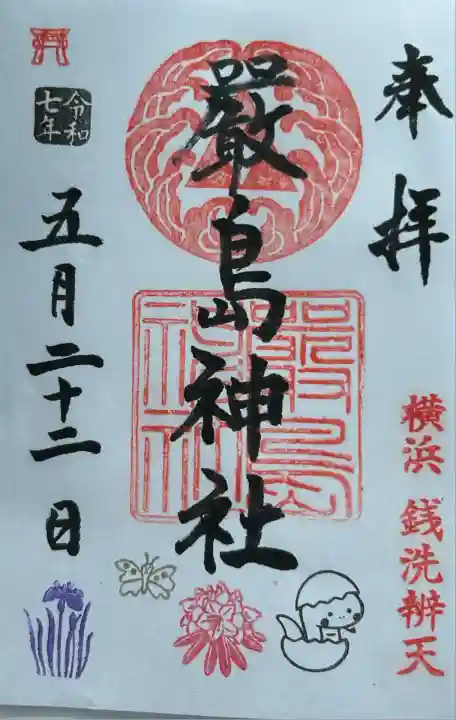 奉拝
横浜 銭洗辨天
嚴島神社
嚴島神社
令和七年
五月二十二日